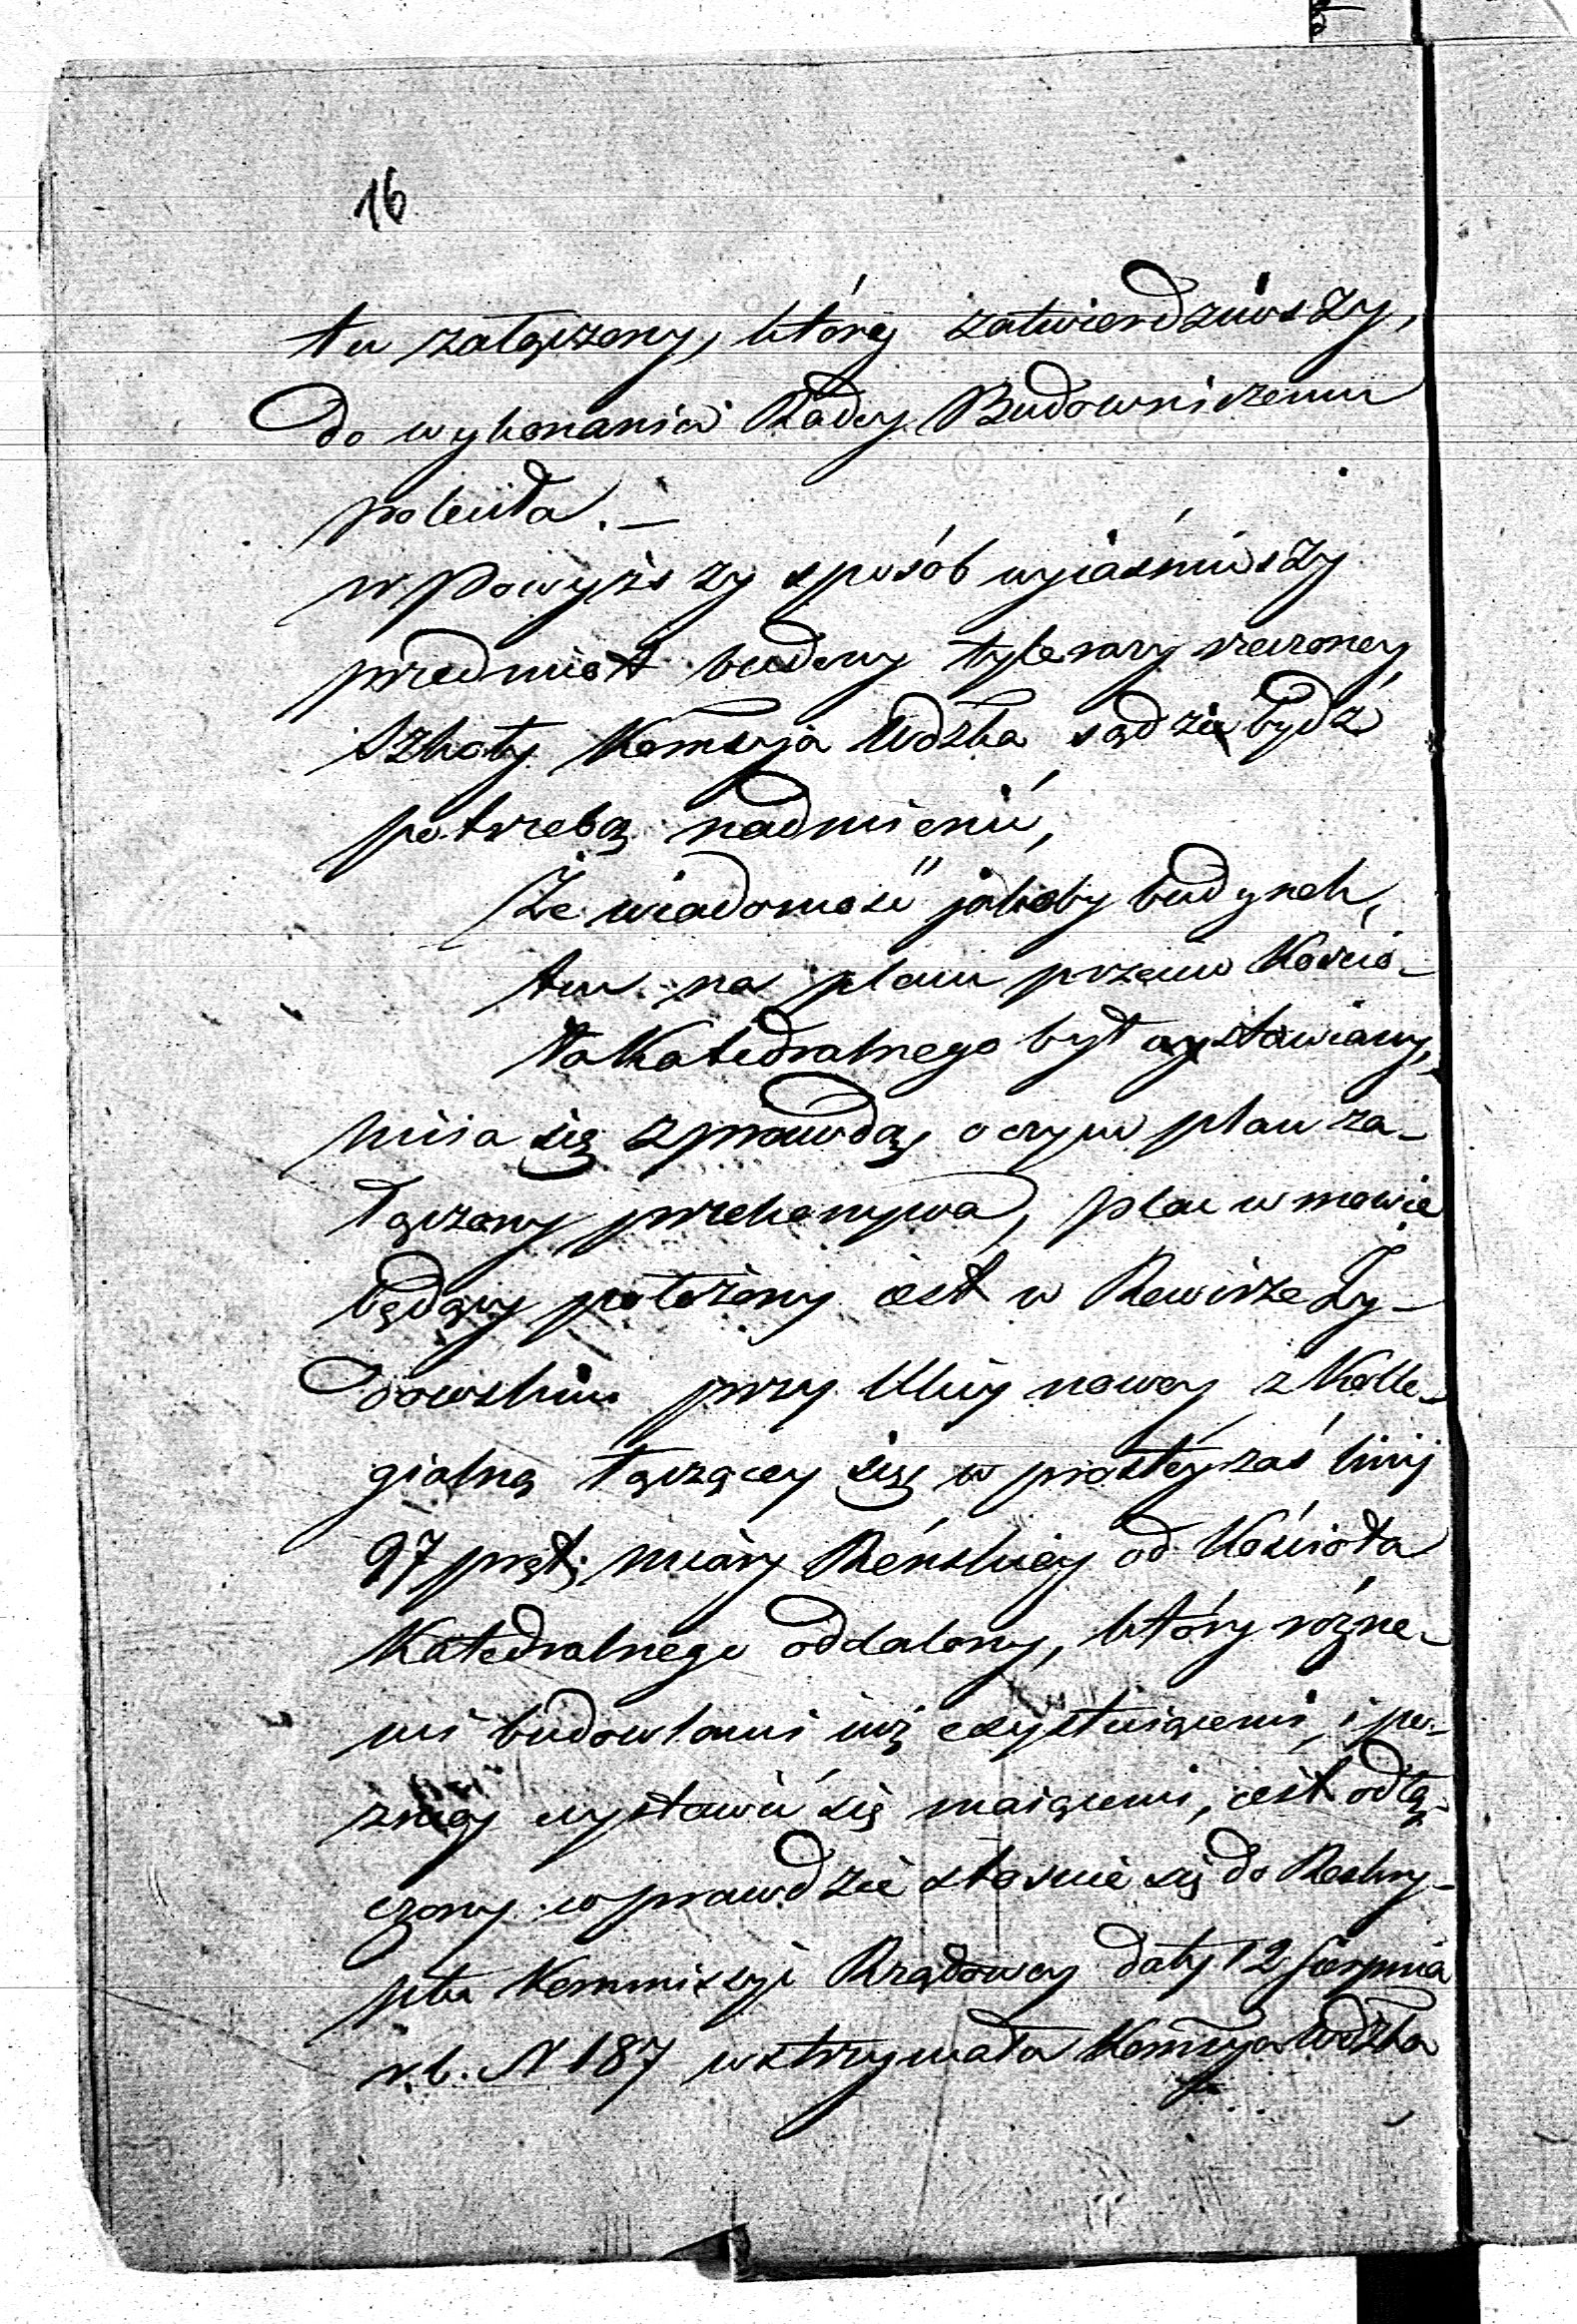 16
tu załączony, który zatwierdziwszy,
do wykonania Radcy Budowniczemu
poleciła. —
w Powyższy sposób wyiaśniwszy
przedmiot budowy tyle razy rzeczoney
Szkoły Kommsyja Wdzka sądzi bydź
potrzebą nadmienić,
Że wiadomość jakoby budynek,
ten na placu przeciw Kościo-
ła Katedralnego był wystawiany,
miia się z prawdą, o czym plan za-
łączony przekonywa, plac w mowie
będący położony iest w Rewirze Ży-
dowskim przy Ulicy nowey z Kolle-
gialną łączącey się w prostey zaś linij
97 pręt: miary Reńskiey od Kościoła
Katedralnego oddalony, który różne-
mi budowlami iuż exystuiącemi, i po-
zniey wystawić się maiącemi, iest odłą-
czony wprawdzie stosuie się do Reskry-
ptu Kommissyi Rządowey daty 12 Sierpnia
r. b. N 187 wstrzymała Kommsyja Wdzka